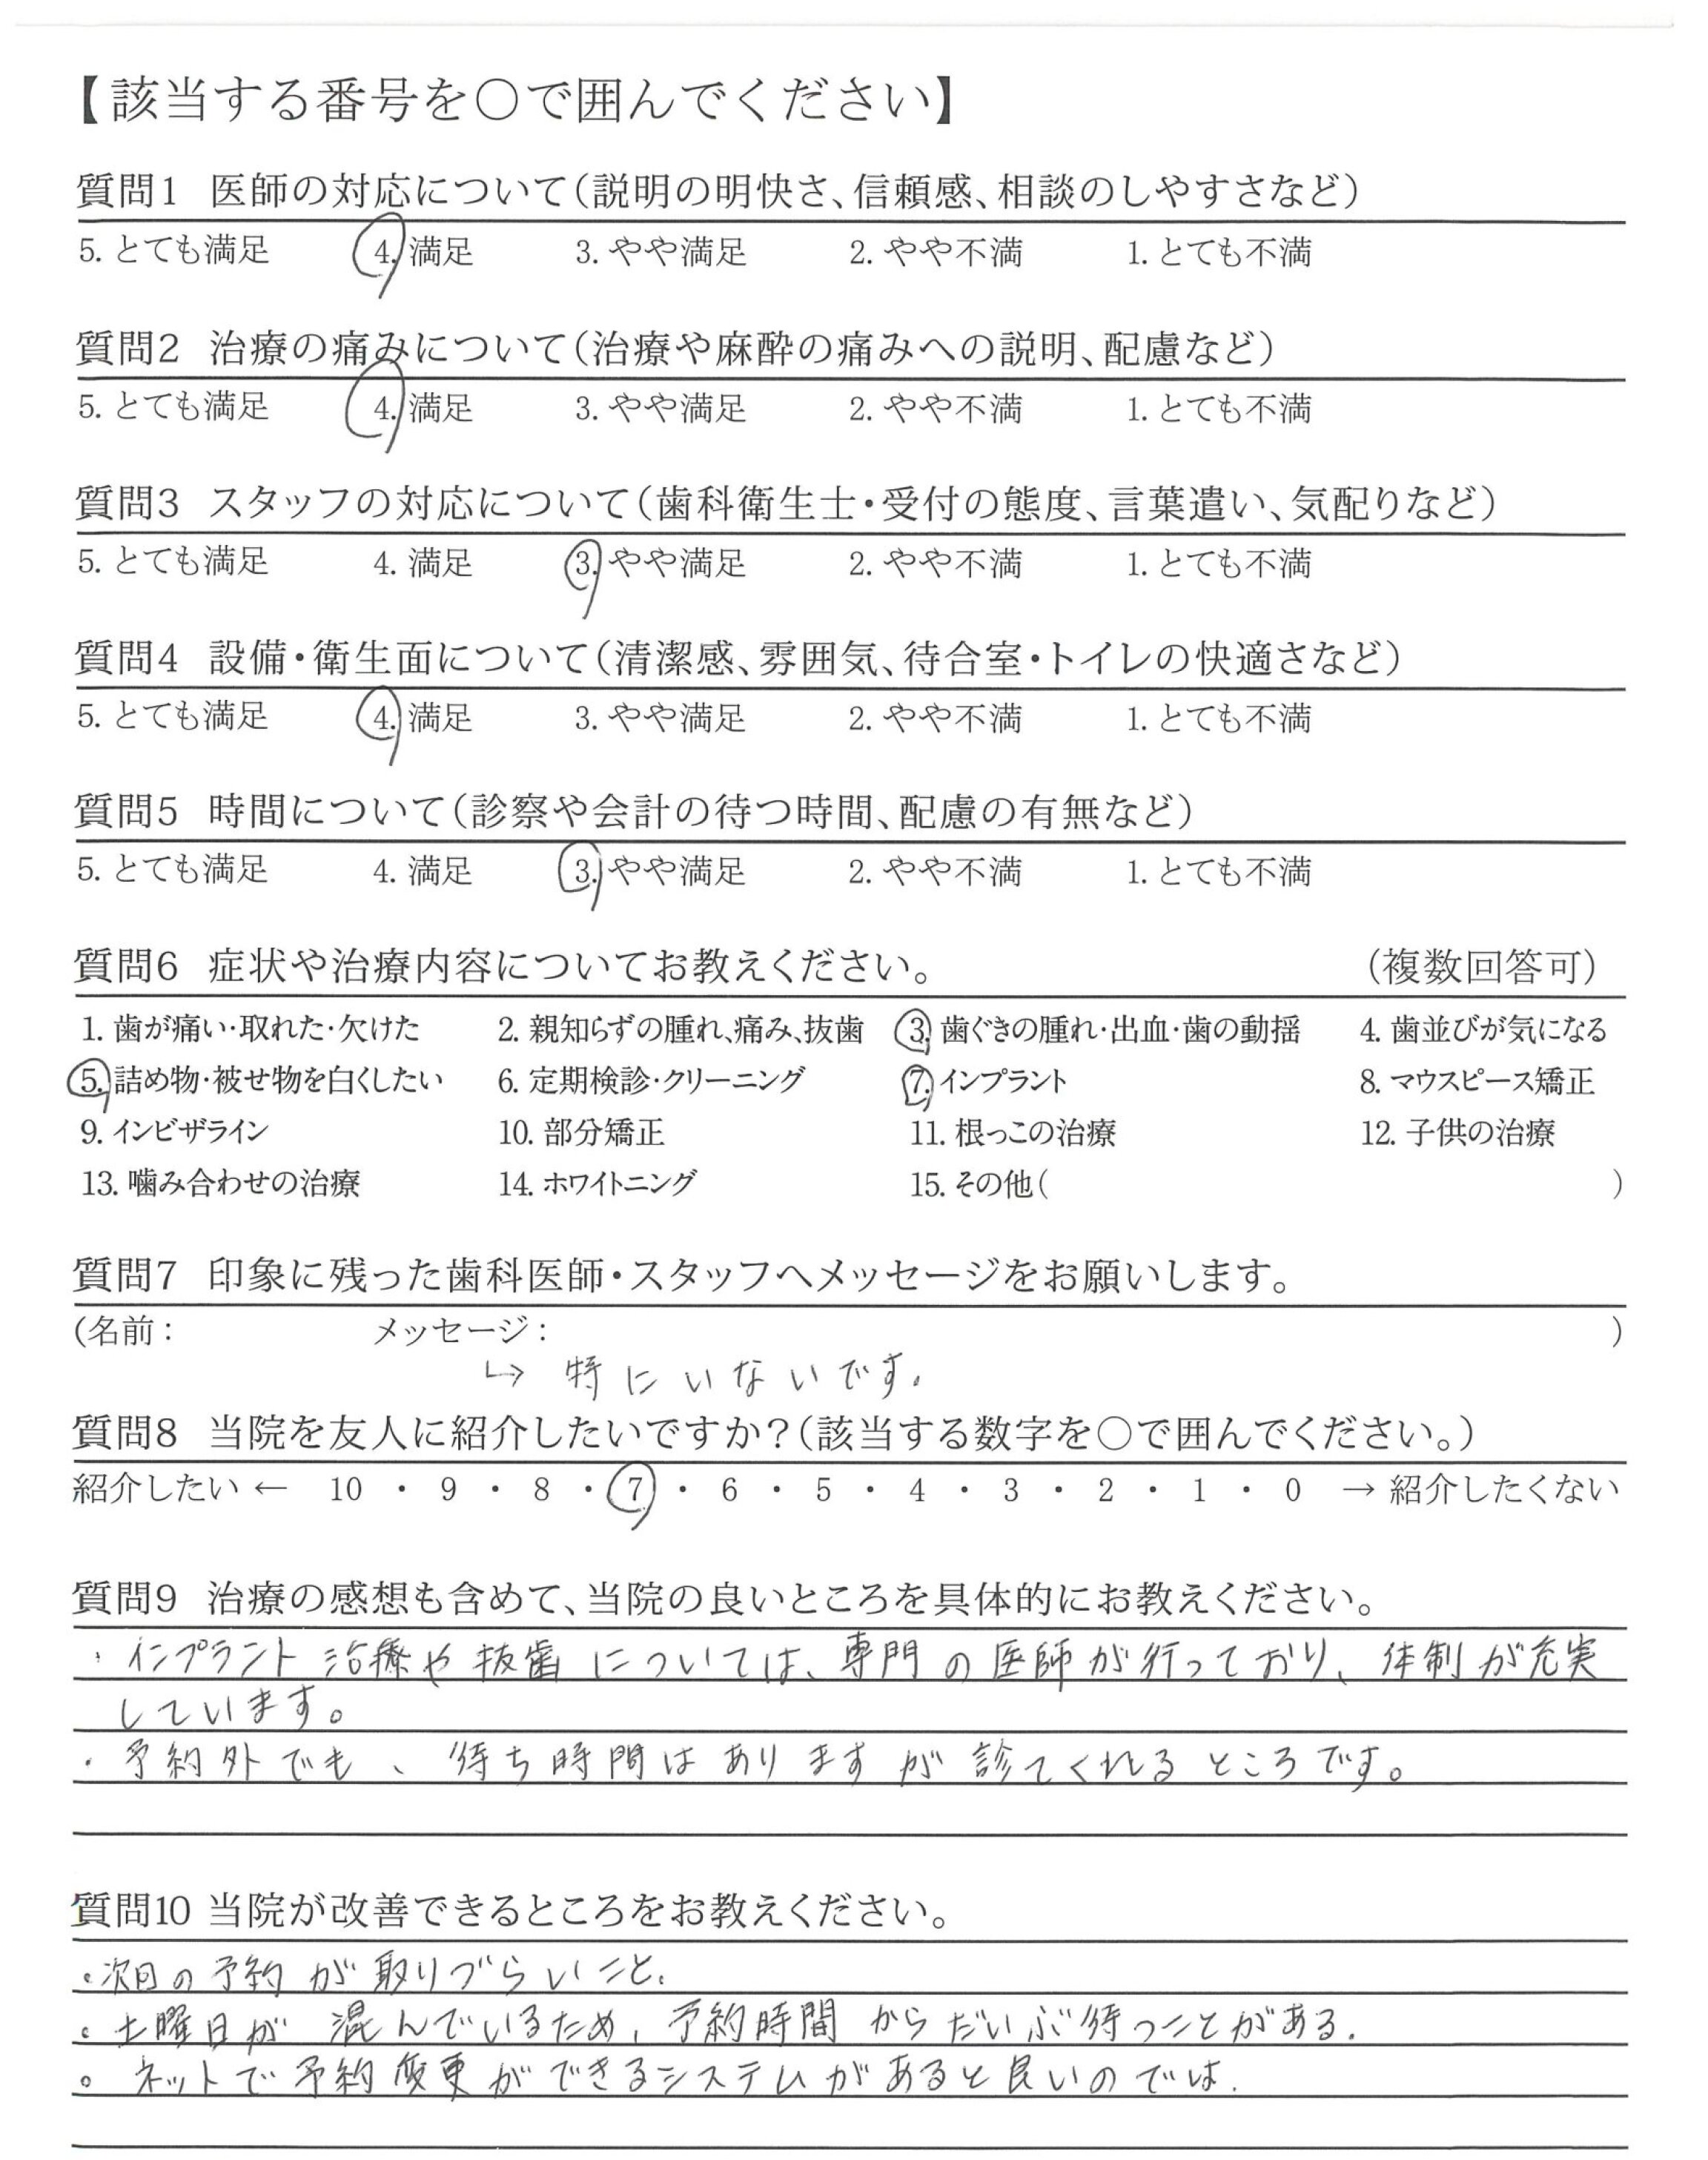 【該当する番号を○で囲んでください】
質問1 医師の対応について(説明の明快さ、信頼感、相談のしやすさなど)
5. とても満足 4. 満足 3. やや満足 2. やや不満 1. とても不満
質問2 治療の痛みについて(治療や麻酔の痛みへの説明、配慮など)
5. とても満足 4. 満足 3. やや満足 2. やや不満 1. とても不満
質問3 スタッフの対応について(歯科衛生士・受付の態度、言葉遣い、気配りなど)
5. とても満足 4. 満足 3. やや満足 2. やや不満 1. とても不満
質問4 設備・衛生面について(清潔感、雰囲気、待合室・トイレの快適さなど)
5. とても満足 4. 満足 3. やや満足 2. やや不満 1. とても不満
質問5 時間について(診察や会計の待つ時間、配慮の有無など)
5. とても満足 4. 満足 3. やや満足 2. やや不満 1. とても不満
質問6 症状や治療内容についてお教えください。 (複数回答可)
1. 歯が痛い・取れた・欠けた 2. 親知らずの腫れ、痛み、抜歯 3. 歯ぐきの腫れ・出血・歯の動揺 4. 歯並びが気になる
5. 詰め物・被せ物を白くしたい 6. 定期検診・クリーニング 7. インプラント 8. マウスピース矯正
9. インビザライン 10. 部分矯正 11. 根っこの治療 12. 子供の治療
13. 噛み合わせの治療 14. ホワイトニング 15. その他( )
質問7 印象に残った歯科医師・スタッフへメッセージをお願いします。
(名前： メッセージ： )
↳ 特にいないです.
質問8 当院を友人に紹介したいですか？(該当する数字を○で囲んでください。)
紹介したい ← 10 ・ 9 ・ 8 ・ 7 ・ 6 ・ 5 ・ 4 ・ 3 ・ 2 ・ 1 ・ 0 → 紹介したくない
質問9 治療の感想も含めて、当院の良いところを具体的にお教えください。
・インプラント治療や抜歯については、専門の医師が行っており、体制が充実
しています。
・予約外でも、待ち時間はありますが診てくれるところです。
質問10 当院が改善できるところをお教えください。
・次回の予約が取りづらいこと.
・土曜日が混んでいるため、予約時間からだいぶ待つことがある.
・ネットで予約変更ができるシステムがあると良いのでは.